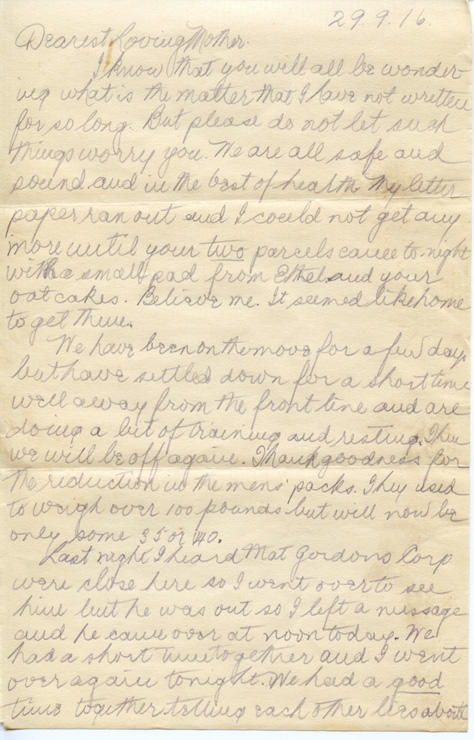 29.9.16.
Dearest Loving Mother.
I know that you will all be wonder-
ing what is the matter that I have not written
for so long. But please do not let such
things worry you. We are all safe and
sound and in the best of health. My letter
paper ran out and I could not get any
more until your two parcels came to night
with a small pad from Ethel and your
oatcakes. Believe me. It seemed like home
to get them.
We have been on the move for a few days
but have settled down for a short time
well away from the front line and are
doing a bit of training and resting. Then
we will be off again. Thank goodness for
the reduction in the mens' packs. They used
to weigh over 100 pounds but will now be
only some 35 or 40.
Last night I heard Mat Gordons Corp
were close here so I went over to see
him but he was out so I left a message
and he came over at noon today. We
had a short time together and I went
over again tonight. We had a good
time together telling each other lies about